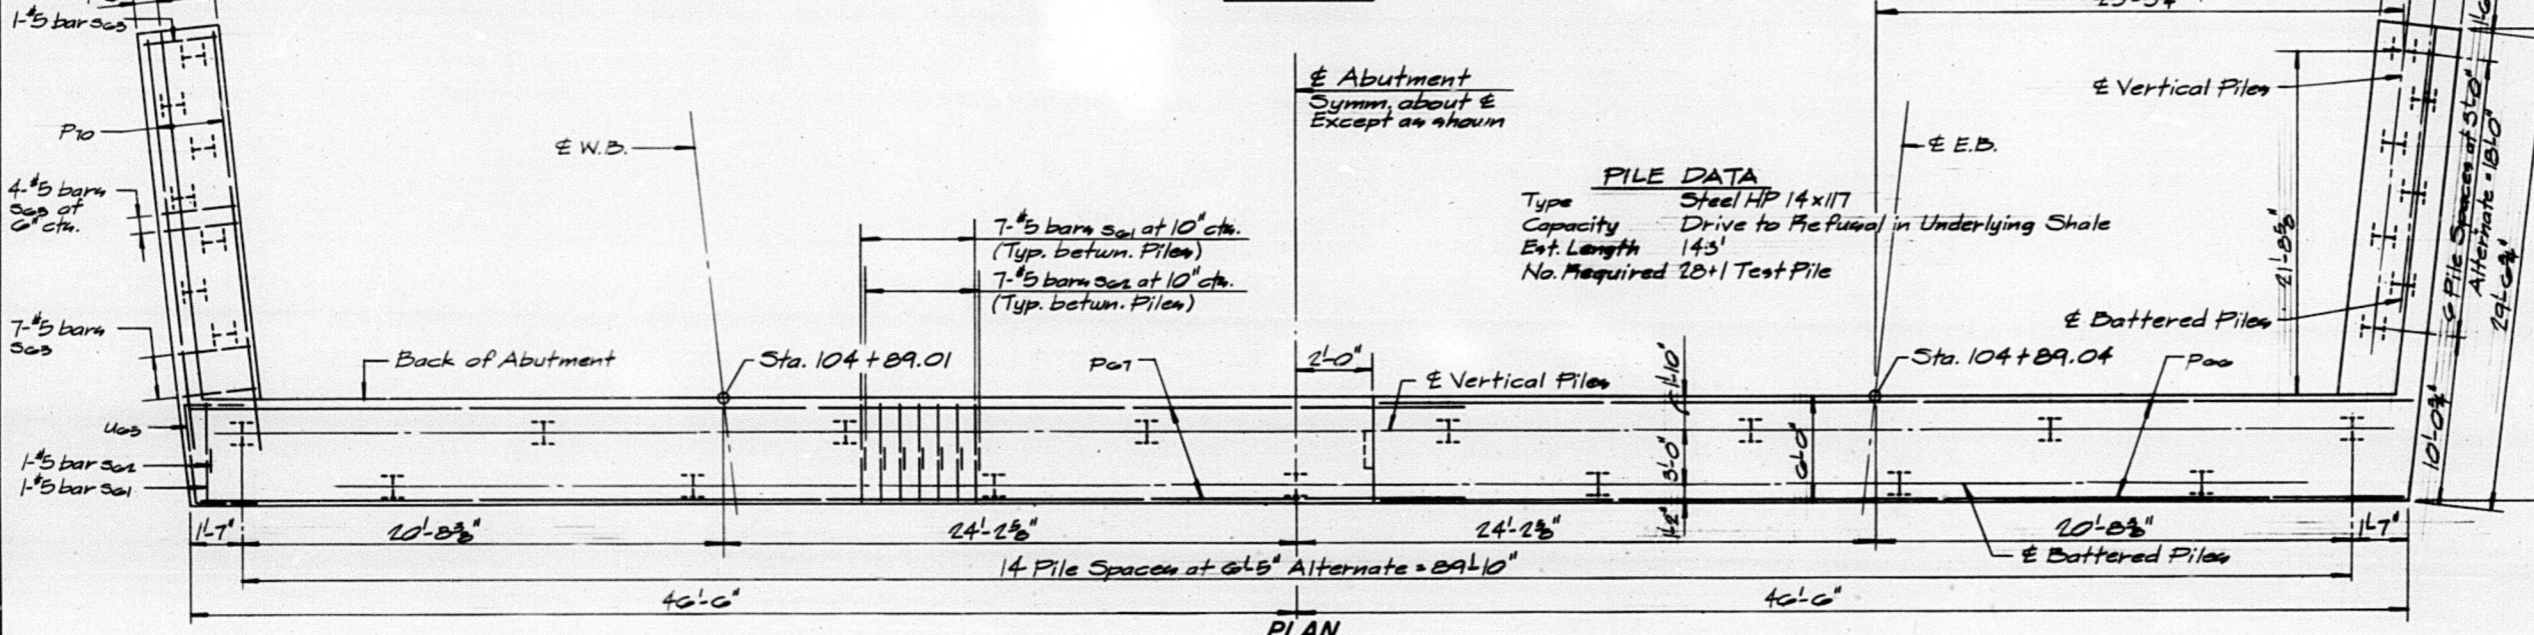 1-#5 bar S63
P70
4-#5 bars
S63 at
6" cts.
7-#5 bars
S63
U63
1-#5 bar S62
1-#5 bar S61
℄ W.B.
Back of Abutment
Sta. 104+89.01
7-#5 bars S61 at 10" cts.
(Typ. betwn. Piles)
7-#5 bars S62 at 10" cts.
(Typ. betwn. Piles)
P67
℄ Abutment
Symm. about ℄
Except as shown
2'-0"
℄ Vertical Piles
PILE DATA
Type Steel HP 14x117
Capacity Drive to Refusal in Underlying Shale
Est. Length 143'
No. Required 28+1 Test Pile
℄ E.B.
Sta. 104+89.04
P66
1'-10"
3'-0"
1'-2"
6'-0"
℄ Vertical Piles
℄ Battered Piles
21'-8⅝"
6 Pile Spaces at 3'-0"
Alternate = 18'-0"
29'-6¾"
10'-0¾"
1'-7"
20'-8⅜"
24'-2⅝"
24'-2⅝"
20'-8⅜"
1'-7"
℄ Battered Piles
14 Pile Spaces at 6'-5" Alternate = 89'-10"
46'-6"
46'-6"
PLAN